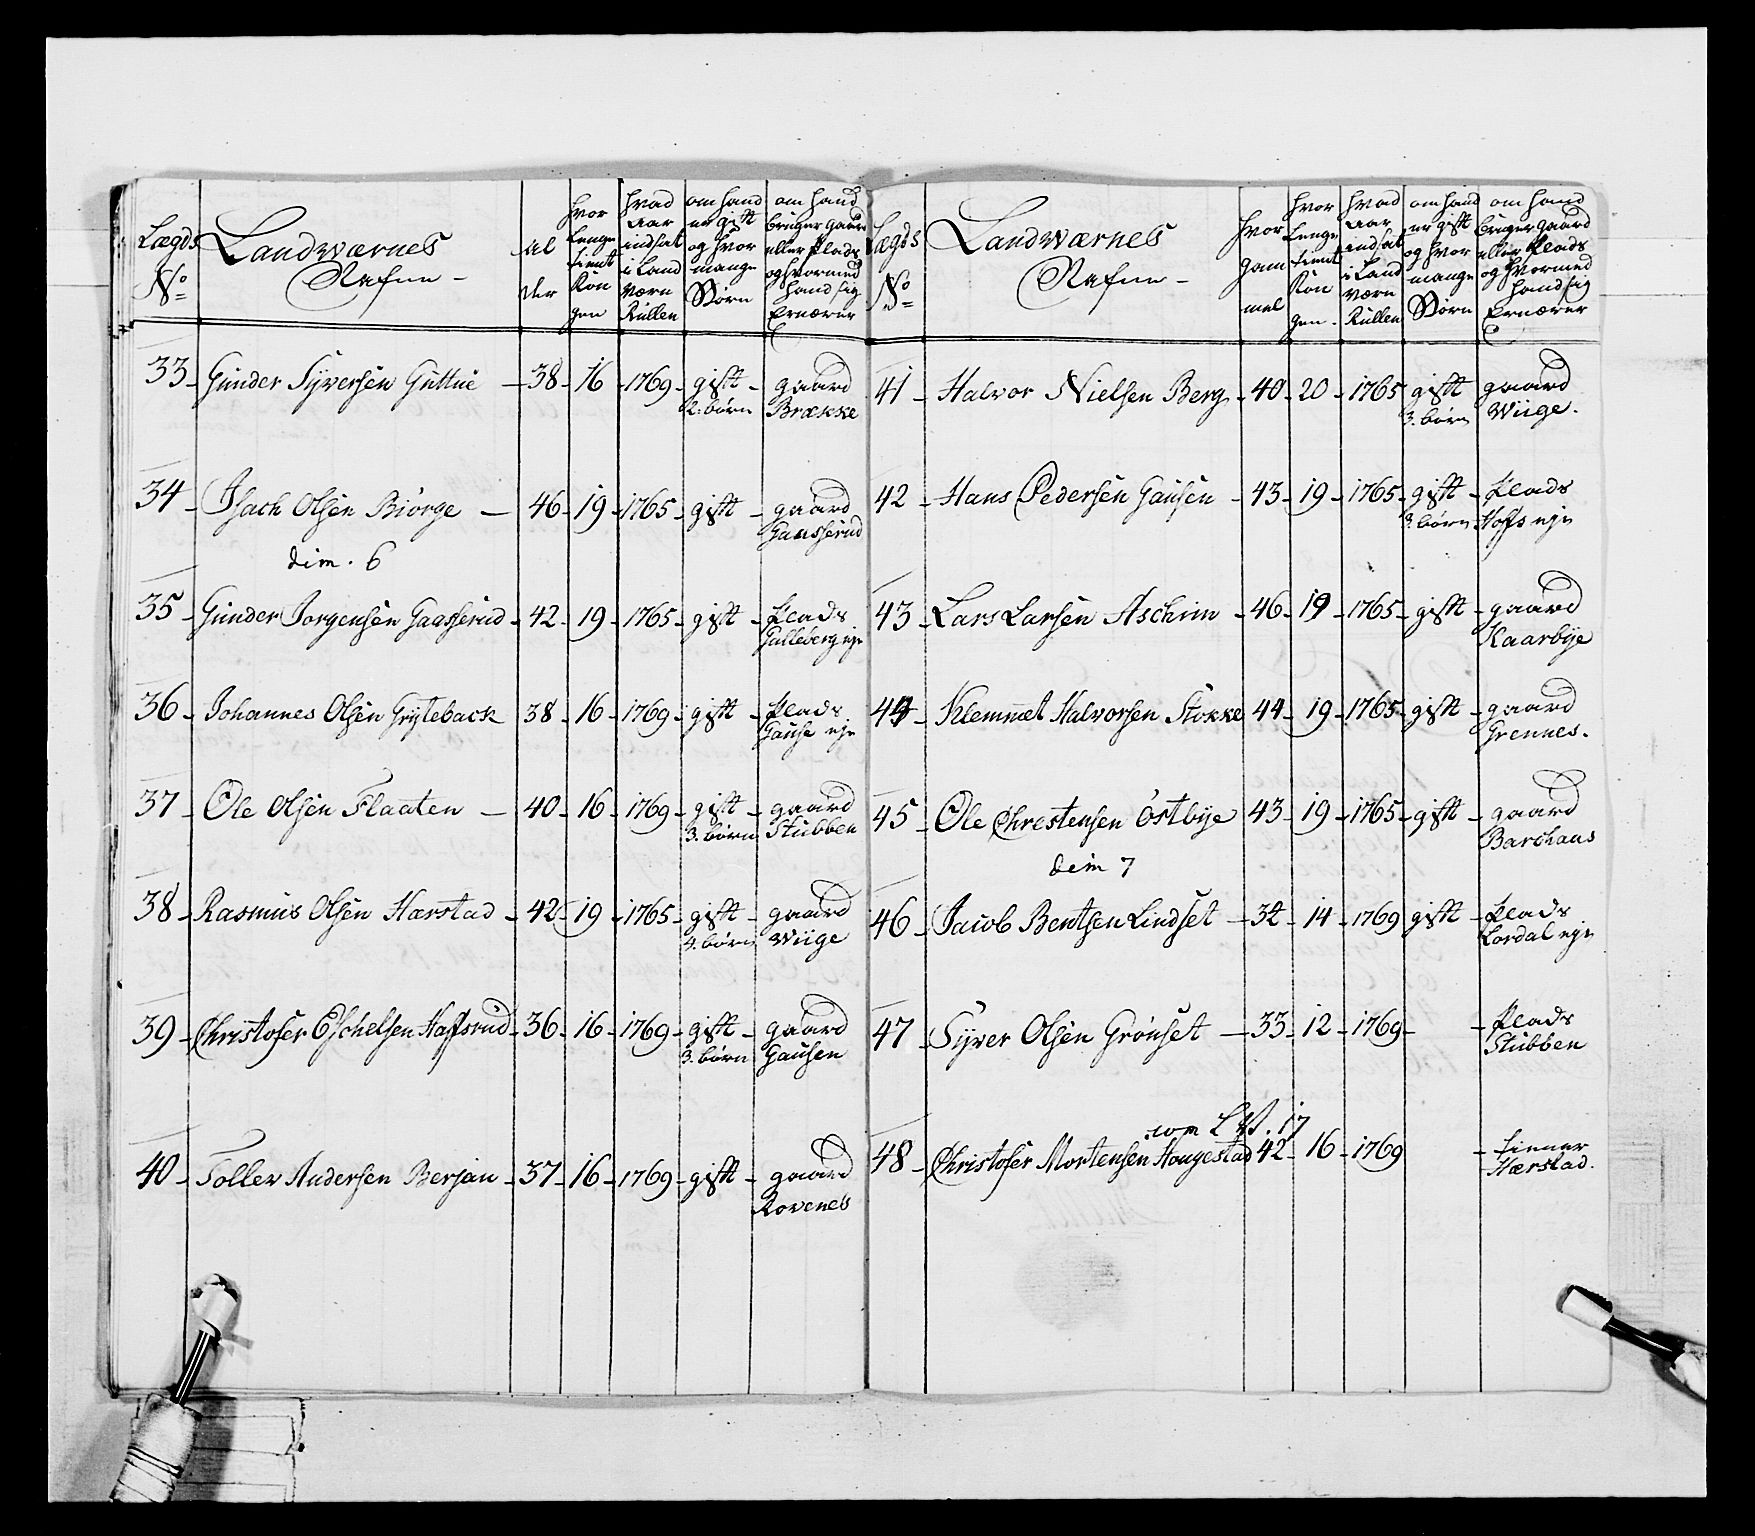 Lægds No
Landværnes Nafne -
al der
hvor lenge tient Kongen
hvad Aar indsat i Land Værn Rullen
om hand er gift og hvor mange Børn
om hand bruger gaard eller Plads og hvormed hand sig Ernærer
33 - Gunder Syversen Guttue - 38 - 16 - 1769 - gift - gaard
2. børn Brække
34 - Isach Olsen Biörge - 46 - 19 - 1765 - gift - gaard
Gaasserud
dim. 6
35 - Gunder Jorgensen Gaasserud - 42 - 19 - 1765 - gift - Plads
Gulleberg eje
36 - Johannes Olsen Gryteback 38 - 16 - 1769 - gift - Plads
Gause eje
37 - Ole Olsen Flaaten - 40 - 16 - 1769 - gift - gaard
3. børn Stubben
38 - Rasmus Olsen Hærstad - 42 - 19 - 1765 - gift - gaard
4. børn Wiige
39 - Christofer Eschelsen Haffsrud - 36 - 16 - 1769 - gift - gaard
3. børn Gausen
40 - Toller Andersen Berjan - 37 - 16 - 1769 - gift - gaard
Rovenes
Lægds No
Landværnes Nafne -
hvor gam mel
hvor lenge tient Kongen -
hvad Aar indsat i Land Værn Rullen
om hand er gift og hvor mange Børn
om hand bruger gaard eller Plads og hvormed hand sig Ernærer
41 - Halvor Nielsen Berg - 40 - 20 - 1765 gift gaard
3. børn Wiige.
42 - Hans Pedersen Gausen - 43 - 19 - 1765 - gift - Plads
3. børn Hoffs eje
43 - Lars Larsen Aschim - 46 - 19 - 1765 - gift - gaard
Kaarbye
44 - Klemmet Halvorsen Stokke 44 - 19 - 1765 - gift - gaard
Grennes.
45 - Ole Chrestensen Östbye 43 - 19 - 1765 - gift - gaard
Barchaas
dim 7
46 - Jacob Bentsen Lindset - 34 - 14 - 1769 gift - Plads
Lordal eje
47 - Syver Olsen Grönset - 33 - 12 - 1769 - - Plads
Stubben
com L W. 17
48 - Christofer Mortensen Hougestad 42 - 16 - 1769 - tienner
Hærstad.